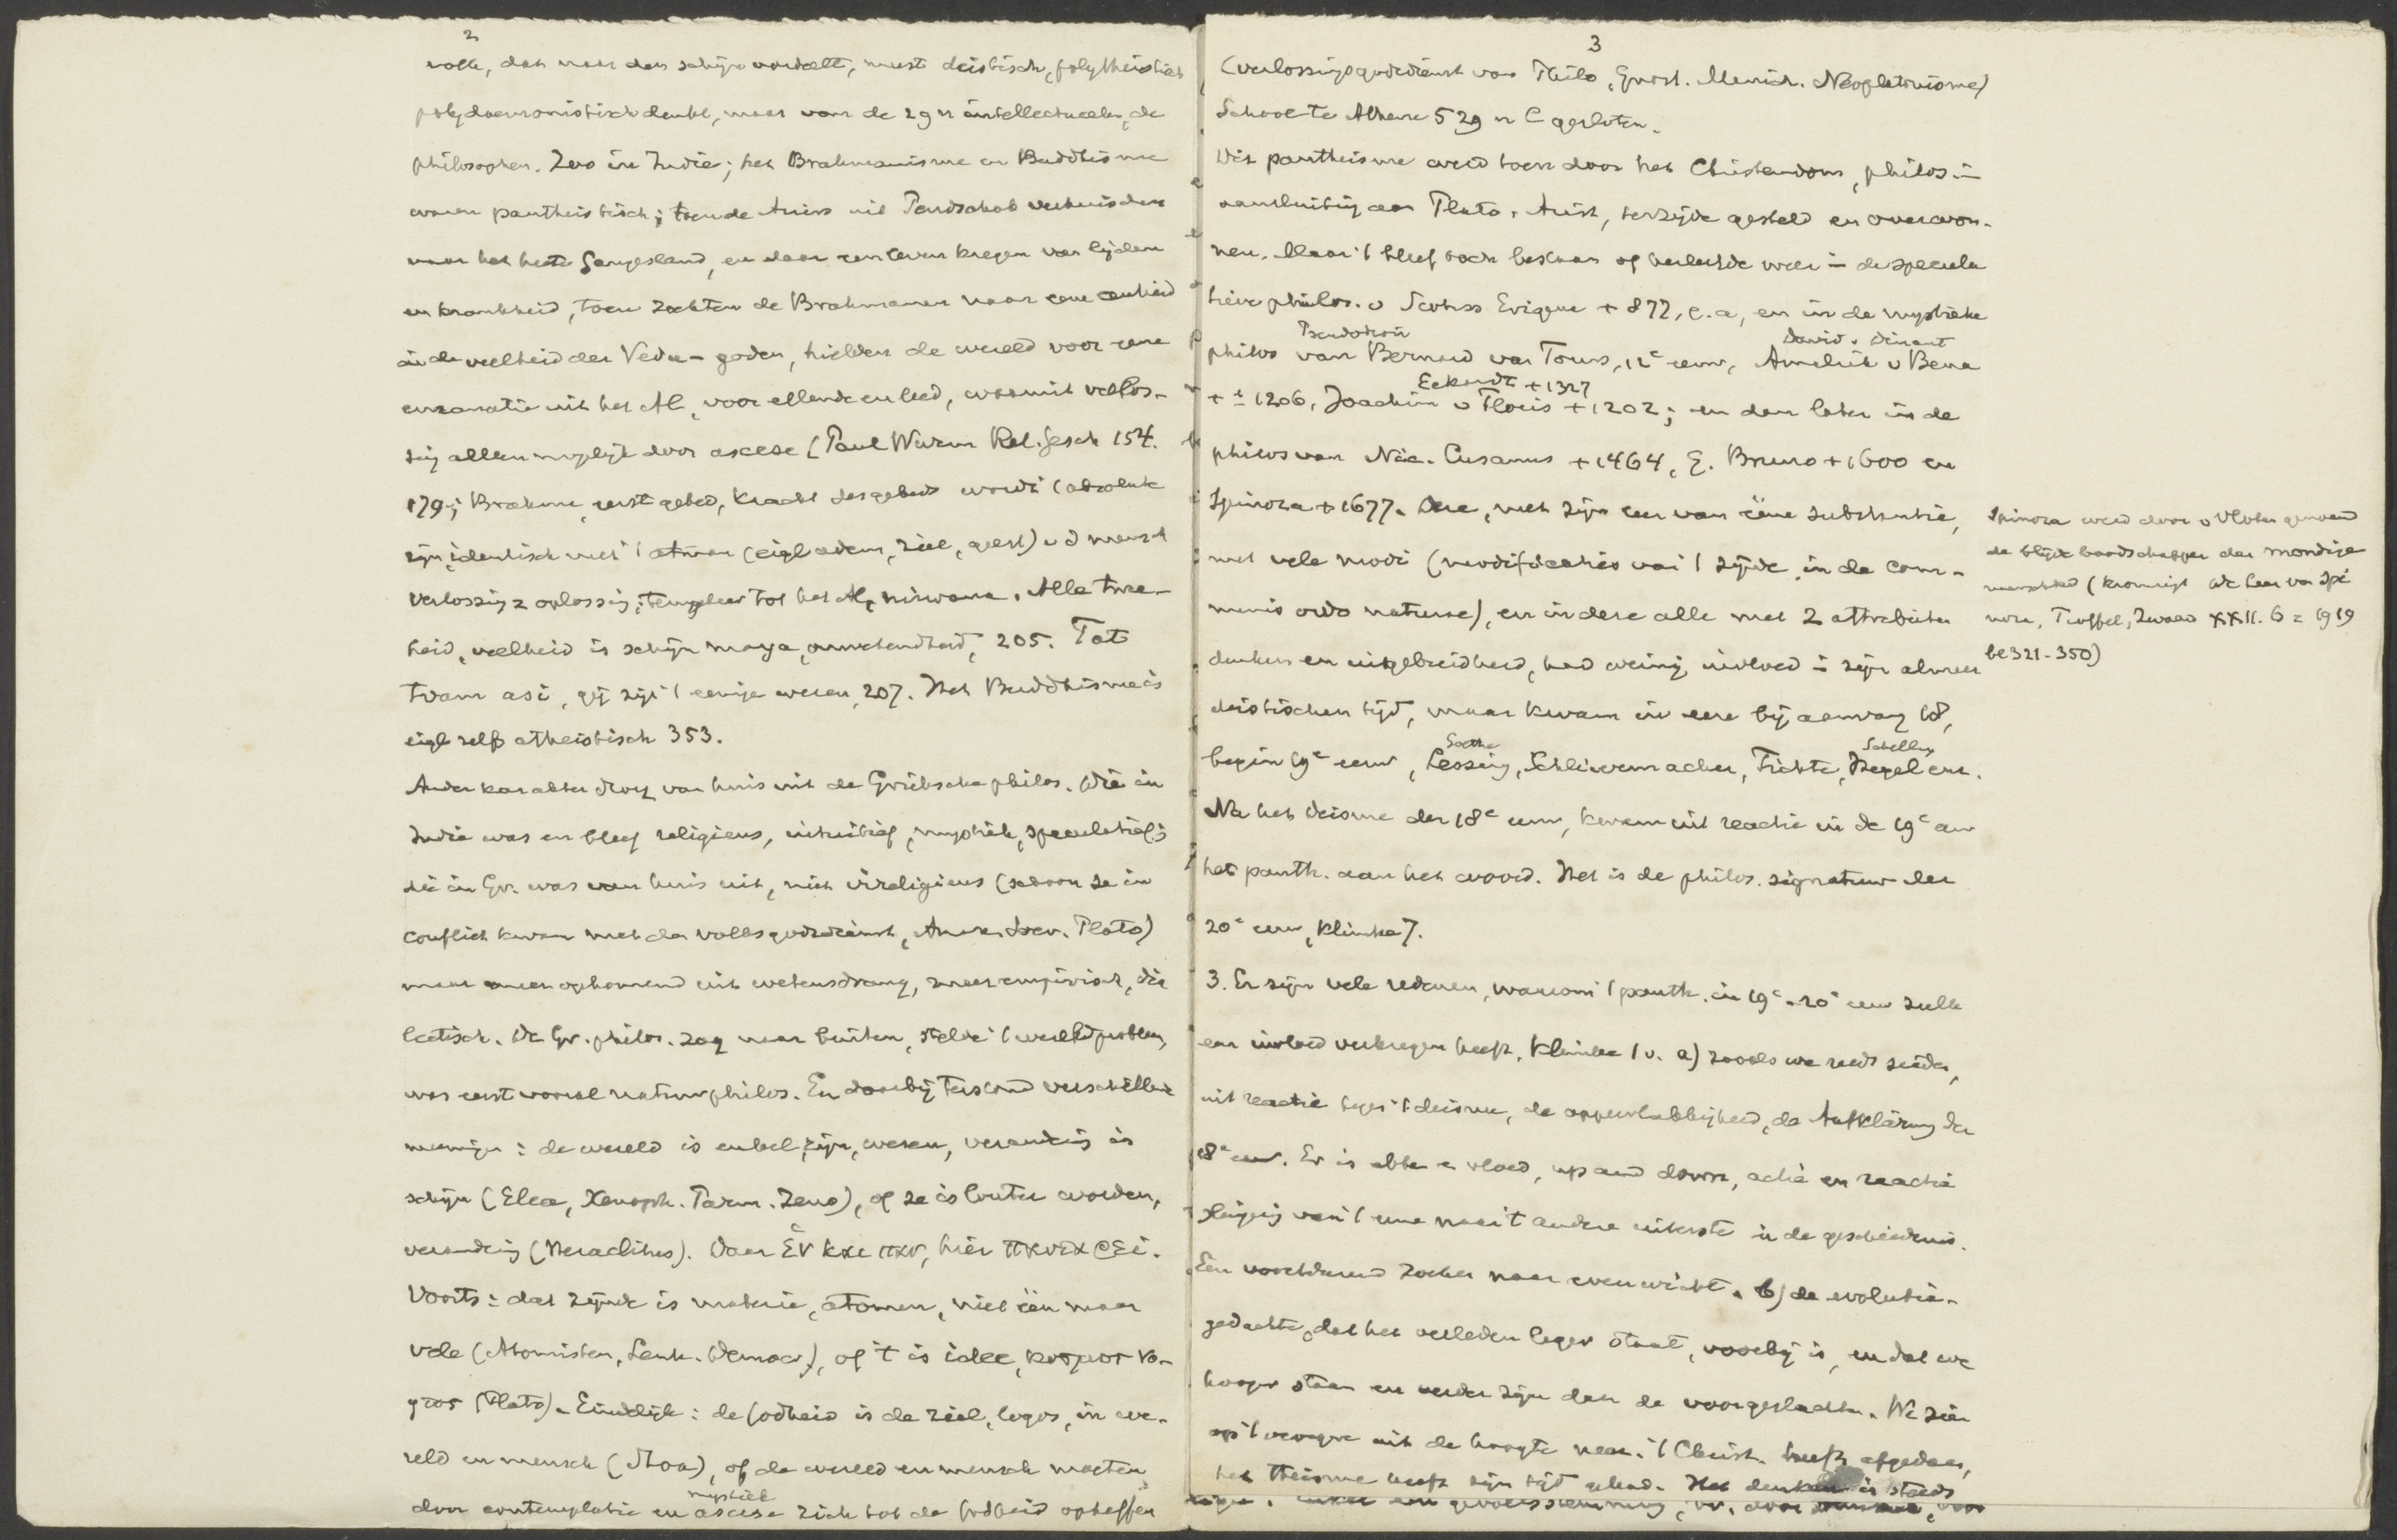 2
volk, dat naar den schijn oordeelt, meest deistisch, polytheistisch
polydaemonistisch denkt, maar van de zgn intellectueelen, de
philosophen. Zoo in Indië; het Brahmanisme en Buddhisme
waren pantheistisch; toen de Ariers uit Pendschab verhuisden
naar het heete Gangesland, en daar een leven kregen van lijden
en krankheid, toen zochten de Brahmanen naar eene eenheid
in de veelheid der Veda-goden, hielden de wereld voor eene
emanatie uit het Al, voor ellende en leed, waaruit verlos-
sing alleen mogelijk door ascese (Paul Wurm Rel. Gesch 154.
179; Brahma, eerst gebed, kracht des gebeds wordt 't absolute
zijn, identisch met 't atman (eigl adem, ziel, geest) v d mensch
verlossing = oplossing, terugkeer tot het Al, nirwana. Alle twee-
heid, veelheid is schijn maya, onwetendheid, 205. Tat
tvam asi, gij zijt 't eenige wezen, 207. Het Buddhisme is
eigl zelfs atheistisch 353.
Ander karakter droeg van huis uit de Grieksche philos. Die in
Indië was en bleef religieus, intuitief, mystiek, speculatief;
die in Gr. was van huis uit, niet irreligieus (schoon ze in
conflict kwam met den volksgodsdienst, Anax. Socr. Plato)
maar meer opkomend uit wetensdrang, meer empirisch, dia
lectisch. De Gr. philos. zag naar buiten, stelde 't wereldprobleem,
was eerst vooral natuurphilos. En daarbij terstond verschillende
meeningen: de wereld is enkel zijn, wezen, verandering is
schijn (Elea, Xenoph. Parm. Zeno), of ze is louter worden,
verandering (Heraclitus). Daar ἑν και παν, hier παντα ρει.
Voorts: dat zijnde is materie, atomen, niet één maar
vele (Atomisten, Leuk. Democr.), of 't is idee, κοσμος νο-
ητος (Plato). Eindelijk: de Godheid is de ziel, logos, in we-
reld en mensch (Stoa), of de wereld en mensch moeten
door contemplatie en mystiek ascese zich tot de Godheid opheffen
3
(verlossingsgodsdienst van Philo, Gnost. Manich. Neoplatonisme)
School te Athene 529 n C gesloten.
Dit pantheisme werd toen door het Christendom, philos. in
aansluiting aan Plato, Arist, terzijde gesteld en overwon-
nen. Maar 't bleef toch bestaan of herleefde weer in de specula
tieve philos. v Scotus Erigena + 877, e.a, en in de mystieke
Pseudodion David v. Dinant
philos van Bernard van Tours, 12e eeuw, Amalrik v Bena
Eckardt + 1327
+ ± 1206, Joachim v Floris + 1202; en dan later in de
philos van Nic. Cusanus + 1464, G. Bruno + 1600 en
Spinoza + 1677. Deze, met zijn leer van ééne substantie,
met vele modi (modificaties van 't zijnde, in de com-
munis ordo naturae), en in deze alle met 2 attributen
denken en uitgebreidheid, had weinig invloed in zijn almeer
deistischen tijd, maar kwam in eere bij aanvang 18,
Goethe Schelling
begin 19e eeuw, Lessing, Schleiermacher, Fichte, Hegel enz.
Na het deisme der 18e eeuw, kwam uit reactie in de 19e eeuw
het panth. aan het woord. Het is de philos. signatuur der
20e eeuw, Klimke 7.
3. Er zijn vele redenen, waarom 't panth. in 19e - 20e eeuw zulk
een invloed verkregen heeft. Klimke 1 v. a) zooals we reeds zeiden,
uit reactie tegen 't deisme, de oppervlakkigheid, de Aufklärung der
18e eeuw. Er is ebbe en vloed, up and down, actie en reactie
slinging van 't eene naar 't andere uiterste in de geschiedenis.
Een voortdurend zoeken naar evenwicht. b) de evolutie-
gedachte, dat het verleden lager staat, voorbij is, en dat we
hooger staan en verder zijn dan de voorgeslachten. We zien
op 't vroegere uit de hoogte neer. 't Christ. heeft afgedaan,
het theisme heeft zijn tijd gehad. Het denken is steeds
Spinoza werd door v Vloten genoemd
de blijde boodschapper der mondige
menschheid (Kromsigt De leer van Spi
noza, Troffel, Zwaard XXII. 6 = 1919
bl 321-350)